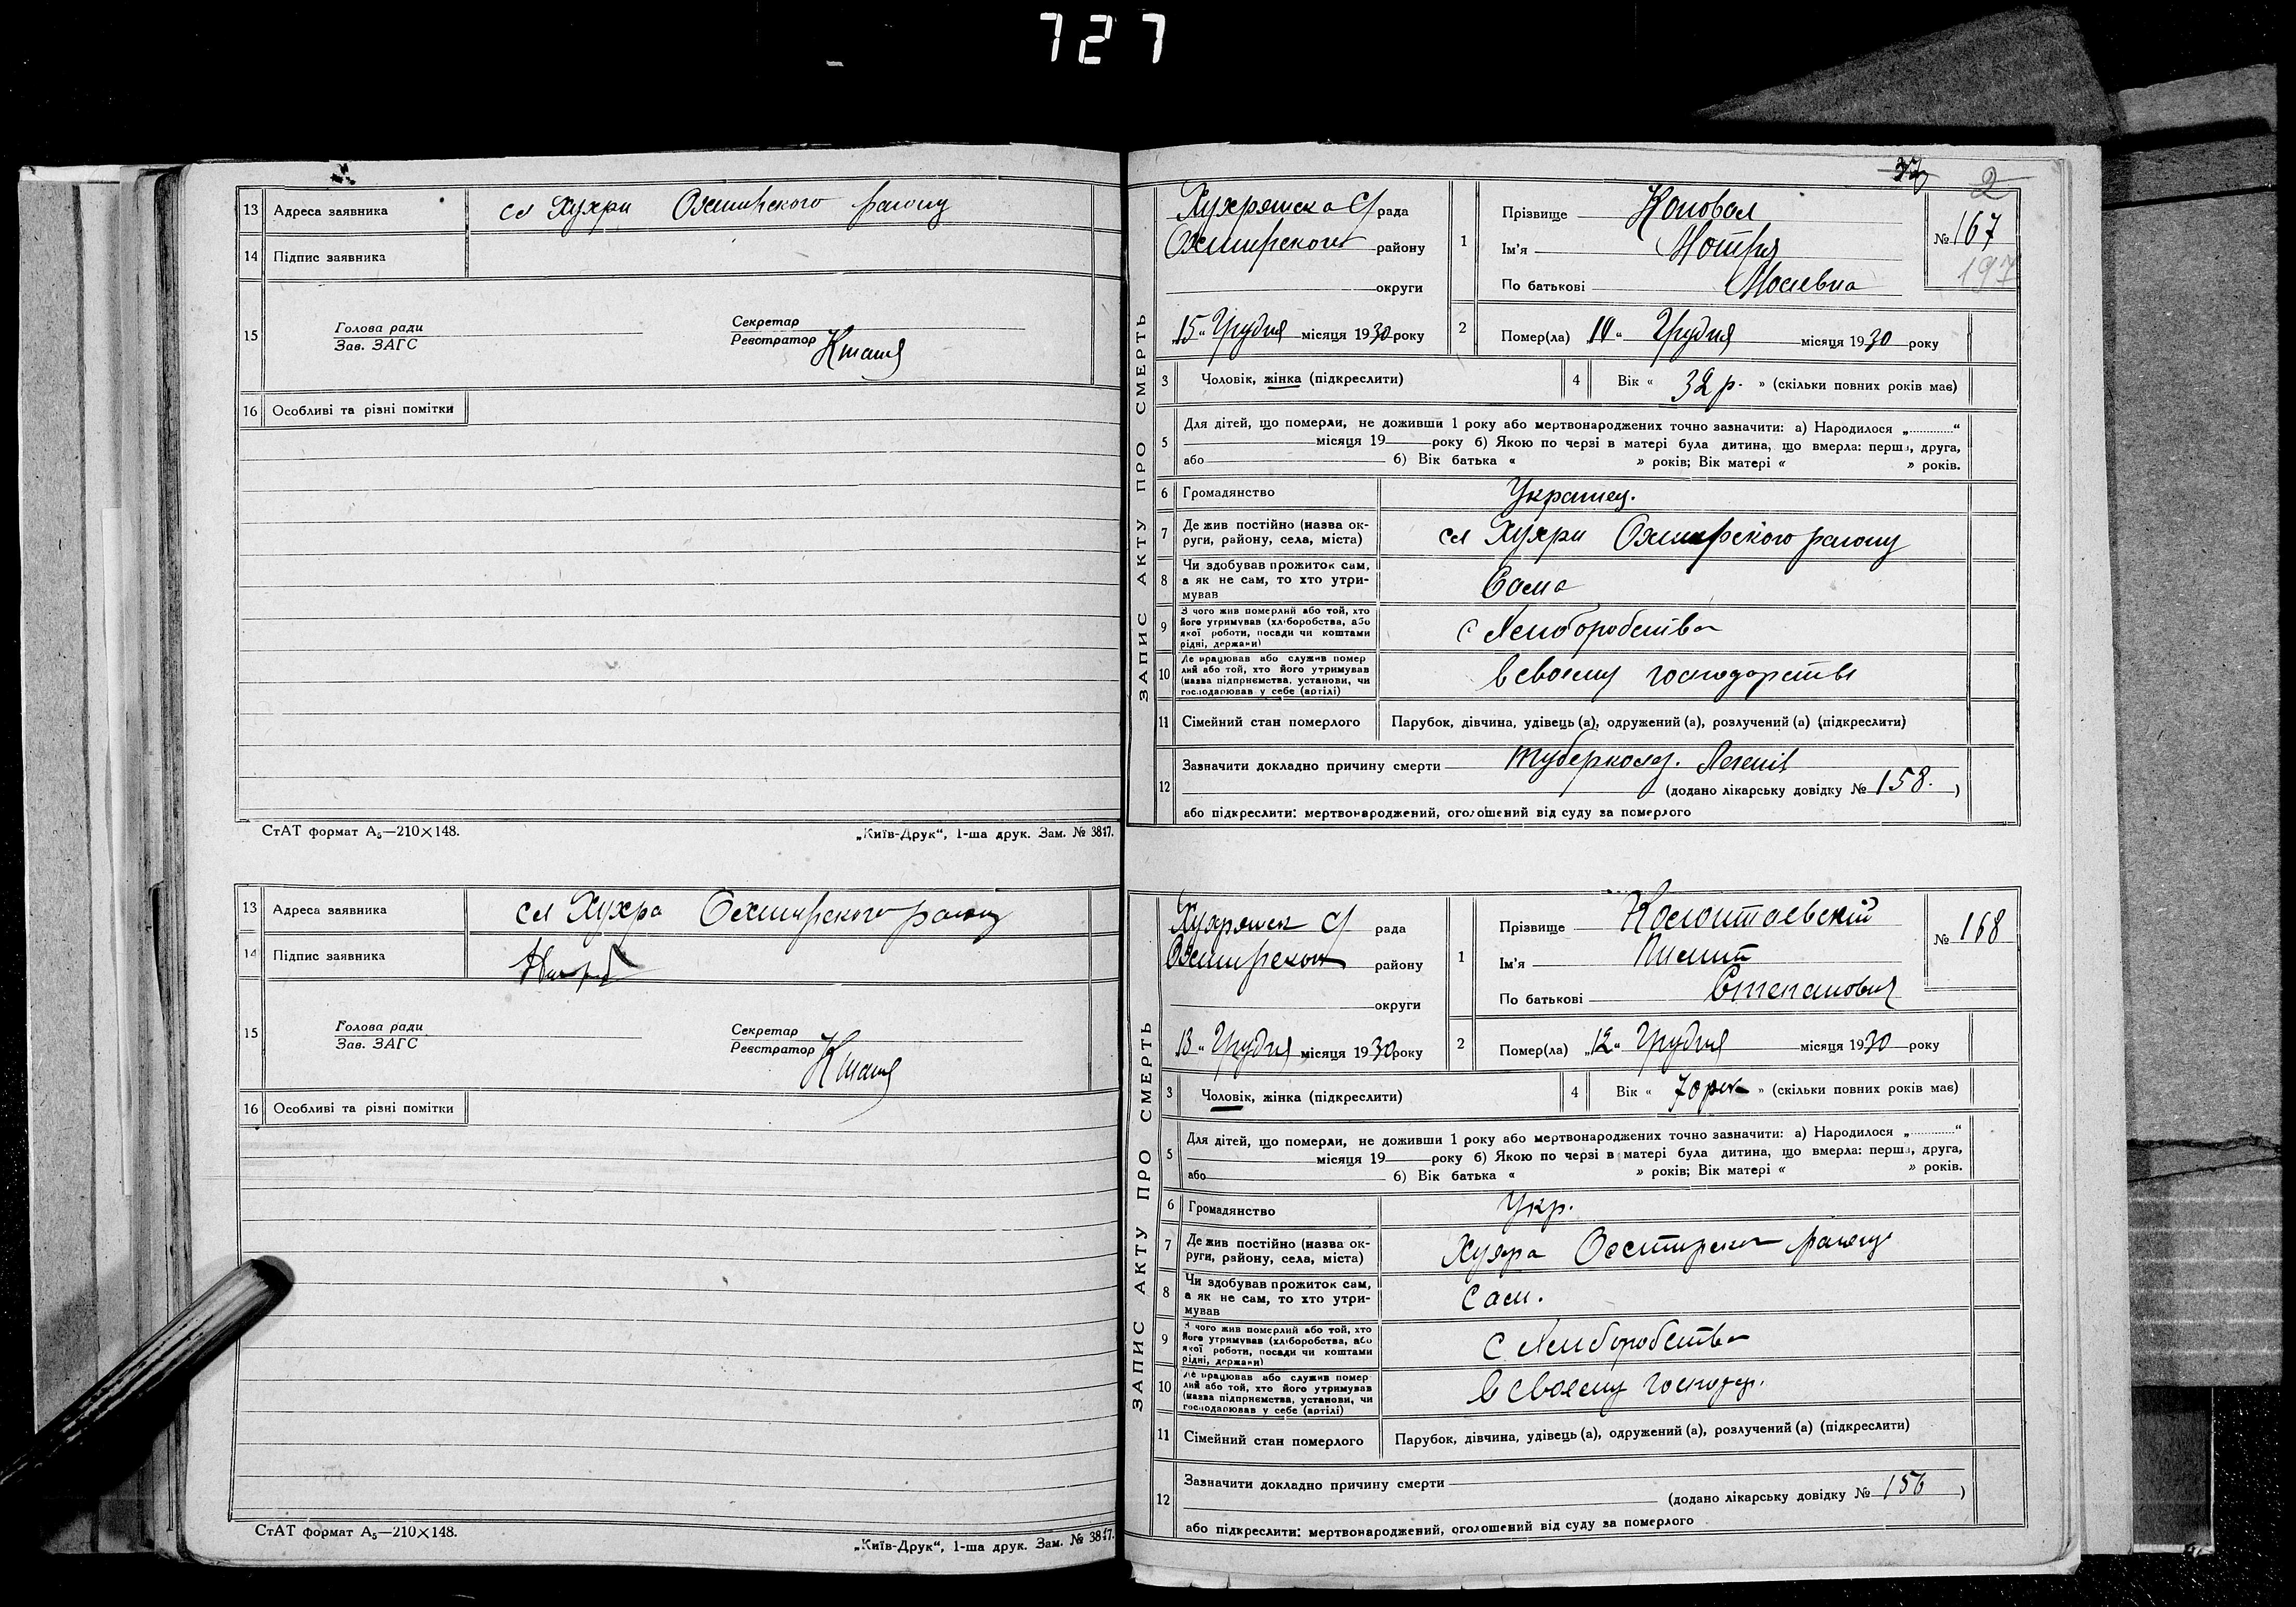 727
13 Адреса заявника сл Хухри Охтирского району
14 Підпис заявника
15 Голова ради
Зав. ЗАГС
Секретар
Реєстратор
16 Особливі та різні помітки
СтАТ формат А₅—210×148.
„Київ-Друк“, 1-ша друк. Зам. № 3817.
13 Адреса заявника сл Хухра Охтирского району
14 Підпис заявника
15 Голова ради
Зав. ЗАГС
Секретар
Реєстратор
16 Особливі та різні помітки
СтАТ формат А₅—210×148.
„Київ-Друк“, 1-ша друк. Зам. № 3817.
2
ЗАПИС АКТУ ПРО СМЕРТЬ
Хухрянска С/рада
Охтирского району
округи
„15“ Грудня місяця 1930 року
1 Прізвище Коновал
Ім'я Мотря
По батькові Мосієвна
№ 167
197
2 Помер(ла) „10“ Грудня місяця 1930 року
3 Чоловік, жінка (підкреслити)
4 Вік « 32 р. » (скільки повних років має)
5 Для дітей, що померли, не доживши 1 року або мертвонароджених точно зазначити: а) Народилося „ “
місяця 19 року б) Якою по черзі в матері була дитина, що вмерла: перша, друга,
або б) Вік батька « » років; Вік матері « » років.
6 Громадянство Украінец.
7 Де жив постійно (назва ок-
руги, району, села, міста) сл Хухри Охтирского району
8 Чи здобував прожиток сам,
а як не сам, то хто утри-
мував Сама
9 З чого жив померлий або той, хто
його утримував (хліборобства, або
якої роботи, посади чи коштами
рідні, держави) с Хліборобства
10 Де працював або служив помер
лий або той, хто його утримував
(назва підприємства, установи, чи
господарював у себе (артілі) в своему господарстві
11 Сімейний стан померлого Парубок, дівчина, удівець (а), одружений (а), розлучений (а) (підкреслити)
12 Зазначити докладно причину смерти туберкольоз. Легенів
(додано лікарську довідку № 158. )
або підкреслити: мертвонароджений, оголошений від суду за померлого
ЗАПИС АКТУ ПРО СМЕРТЬ
Хухрянск С/ рада
Охтирском району
округи
„13“ Грудня місяця 1930 року
1 Прізвище Колонтаевский
Ім'я
По батькові Степанович
№ 168
2 Помер(ла) „12“ Грудня місяця 1930 року
3 Чоловік, жінка (підкреслити)
4 Вік « 70 рок » (скільки повних років має)
5 Для дітей, що померли, не доживши 1 року або мертвонароджених точно зазначити: а) Народилося „ “
місяця 19 року б) Якою по черзі в матері була дитина, що вмерла: перша, друга,
або б) Вік батька « » років; Вік матері « » років.
6 Громадянство Укр.
7 Де жив постійно (назва ок-
руги, району, села, міста) Хухра Охтирског району
8 Чи здобував прожиток сам,
а як не сам, то хто утри-
мував Сам.
9 З чого жив померлий або той, хто
його утримував (хліборобства, або
якої роботи, посади чи коштами
рідні, держави) с Хліборобства
10 Де працював або служив помер
лий або той, хто його утримував
(назва підприємства, установи, чи
господарював у себе (артілі) в своему господар.
11 Сімейний стан померлого Парубок, дівчина, удівець (а), одружений (а), розлучений (а) (підкреслити)
12 Зазначити докладно причину смерти
(додано лікарську довідку № 156 )
або підкреслити: мертвонароджений, оголошений від суду за померлого